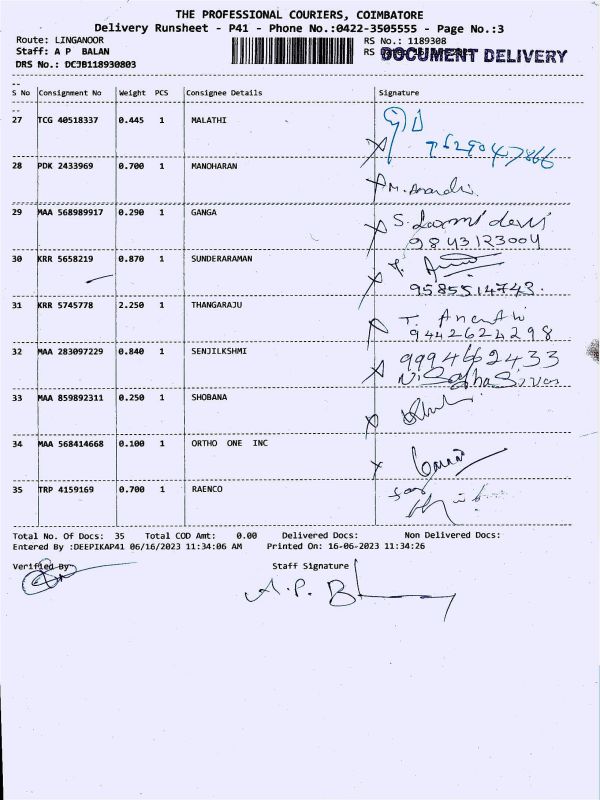 THE PROFESSIONAL COURIERS, COIMBATORE
Delivery Runsheet - P41 - Phone No.:0422-3505555 - Page No.:3
Route: LINGANOOR RS No.: 1189308
Staff: A P BALAN RS DOCUMENT DELIVERY
DRS No.: DCJB118930803
S No Consignment No Weight PCS Consignee Details Signature
27 TCG 40518337 0.445 1 MALATHI
28 PDK 2433969 0.700 1 MANOHARAN
29 MAA 568989917 0.290 1 GANGA S. Laxmi devi
9843123004
30 KRR 5658219 0.870 1 SUNDERARAMAN
9585514743.
31 KRR 5745778 2.250 1 THANGARAJU T. Ananthi
9442624298
32 MAA 283097229 0.840 1 SENJILKSHMI 9994662433
33 MAA 859892311 0.250 1 SHOBANA
34 MAA 568414668 0.100 1 ORTHO ONE INC
35 TRP 4159169 0.700 1 RAENCO
Total No. Of Docs: 35 Total COD Amt: 0.00 Delivered Docs: Non Delivered Docs:
Entered By :DEEPIKAP41 06/16/2023 11:34:06 AM Printed On: 16-06-2023 11:34:26
Verified By Staff Signature
A.P. B